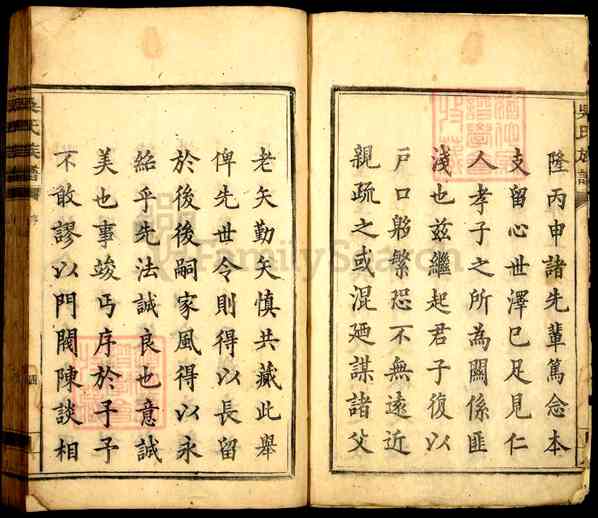 隆丙申諸先輩篤念本
支留心世澤已足見仁
人孝子之所為關係匪
淺也茲繼起君子復以
戶口夥繁恐不無遠近
親疏之或混廼謀諸父
老矣勤矣慎共藏此舉
俾先世令則得以長留
於後後嗣家風得以永
紹乎先法誠良也意誠
美也事竣丐序於予予
不敢謬以門閥陳談相
吳氏族譜
吳氏族譜
FamilySearch